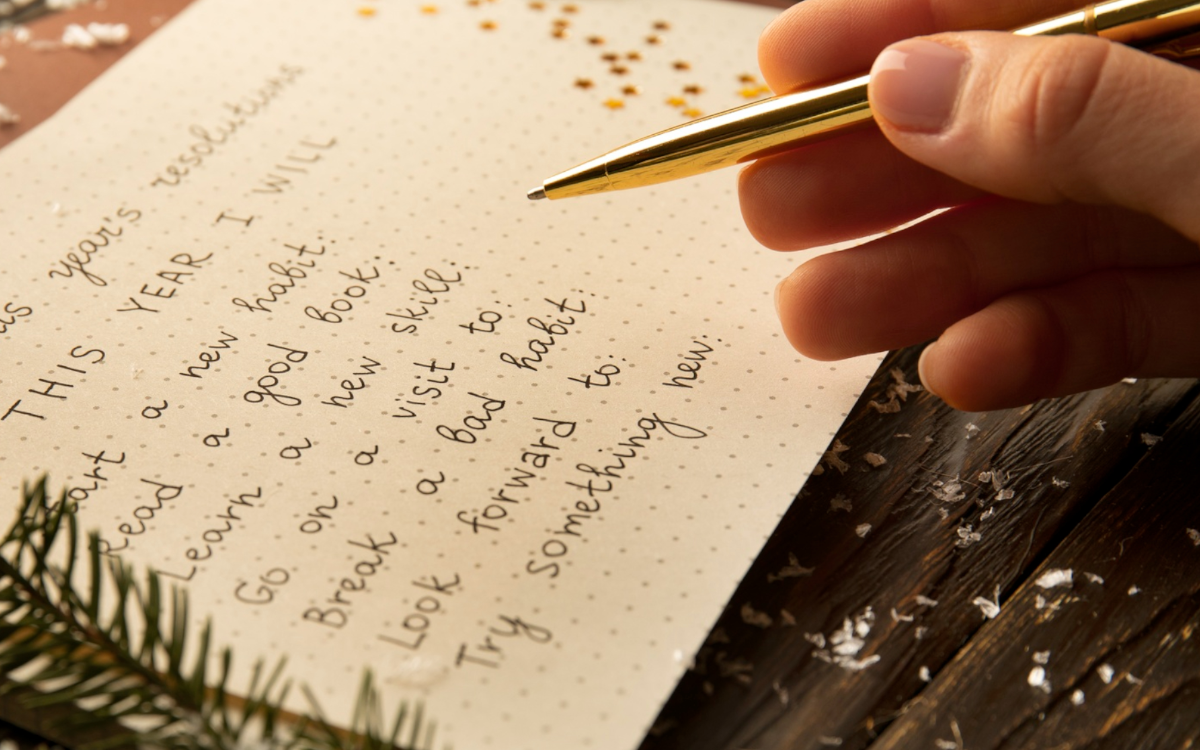 year's resolutions
THIS YEAR I WILL
a new habit:
Read a good book:
Learn a new skill:
Go on a visit to:
Break a bad habit:
Look forward to:
Try something new: